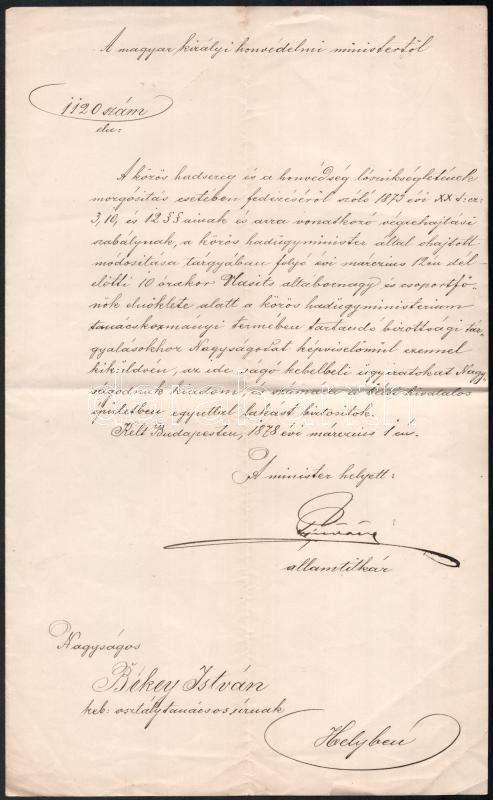 A magyar királyi honvédelmi ministertől
1120 szám
eln:
A közös hadsereg és a honvédség lószükségletének
mozgósítás esetében fedezéséről szóló 1873 évi XX t: cz:
3, 10, és 12 §§ aivak és arra vonatkozó végrehajtási
szabálynak, a közös hadügyminister által óhajtott
módosítása tárgyában folyó évi márczius 12én dél-
előtti 10 órakor altábornagy és csoportfő-
nök elnöklete alatt a közös hadügyministerium
tanácskozmányi termében tartandó bizottsági tár-
gyalásokhoz Nagyságodat képviselőmül ezennel
kiküldvén, az ide vágó kebelbeli ügyiratokat Nagy-
ságodnak kiadom, és számára a hivatalos
épületben egyúttal lakást biztosítok.
Kelt Budapesten, 1878 évi márczius 1 én.
A minister helyett:
államtitkár
Nagyságos
Békey István
keb: osztálytanácsos úrnak
Helyben